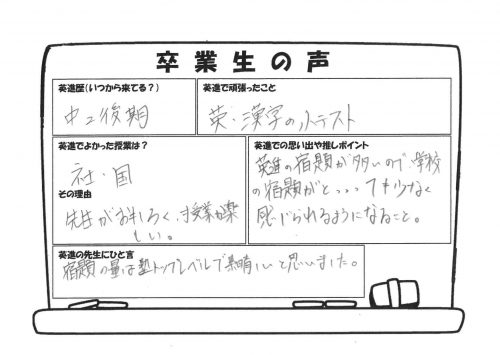 卒業生の声
英進歴(いつから来てる?)
中2後期
英進で頑張ったこと
英・漢字の小テスト
英進でよかった授業は?
社・国
その理由
先生がおもしろく、授業が楽
しい。
英進での思い出や推しポイント
英進の宿題が多いので、学校
の宿題がとっっっても少なく
感じられるようになること。
英進の先生にひと言
宿題の量は塾トップレベルで素晴しいと思いました。